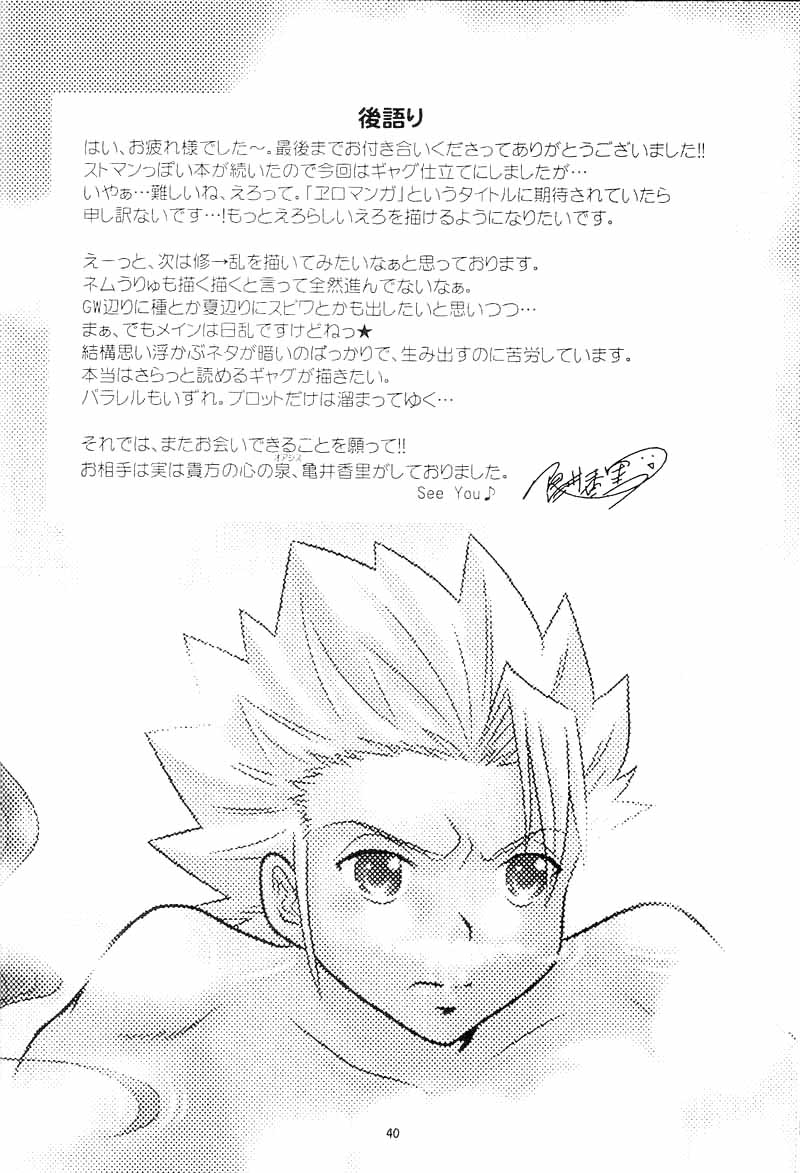 後語り
はい、お疲れ様でした〜。最後までお付き合いくださってありがとうございました!!
ストマンっぽい本が続いたので今回はギャグ仕立てにしましたが…
いやぁ…難しいね、えろって。「ヱロマンガ」というタイトルに期待されていたら
申し訳ないです…!もっとえろらしいえろを描けるようになりたいです。
えーっと、次は修→乱を描いてみたいなぁと思っております。
ネムうりゅも描く描くと言って全然進んでないなぁ。
GW辺りに種とか夏辺りにスピワとかも出したいと思いつつ…
まぁ、でもメインは日乱ですけどねっ★
結構思い浮かぶネタが暗いのばっかりで、生み出すのに苦労しています。
本当はさらっと読めるギャグが描きたい。
パラレルもいずれ。プロットだけは溜まってゆく…
それでは、またお会いできることを願って!!
オアシス
お相手は実は貴方の心の泉、亀井香里がしておりました。
See You♪
亀井香里
40